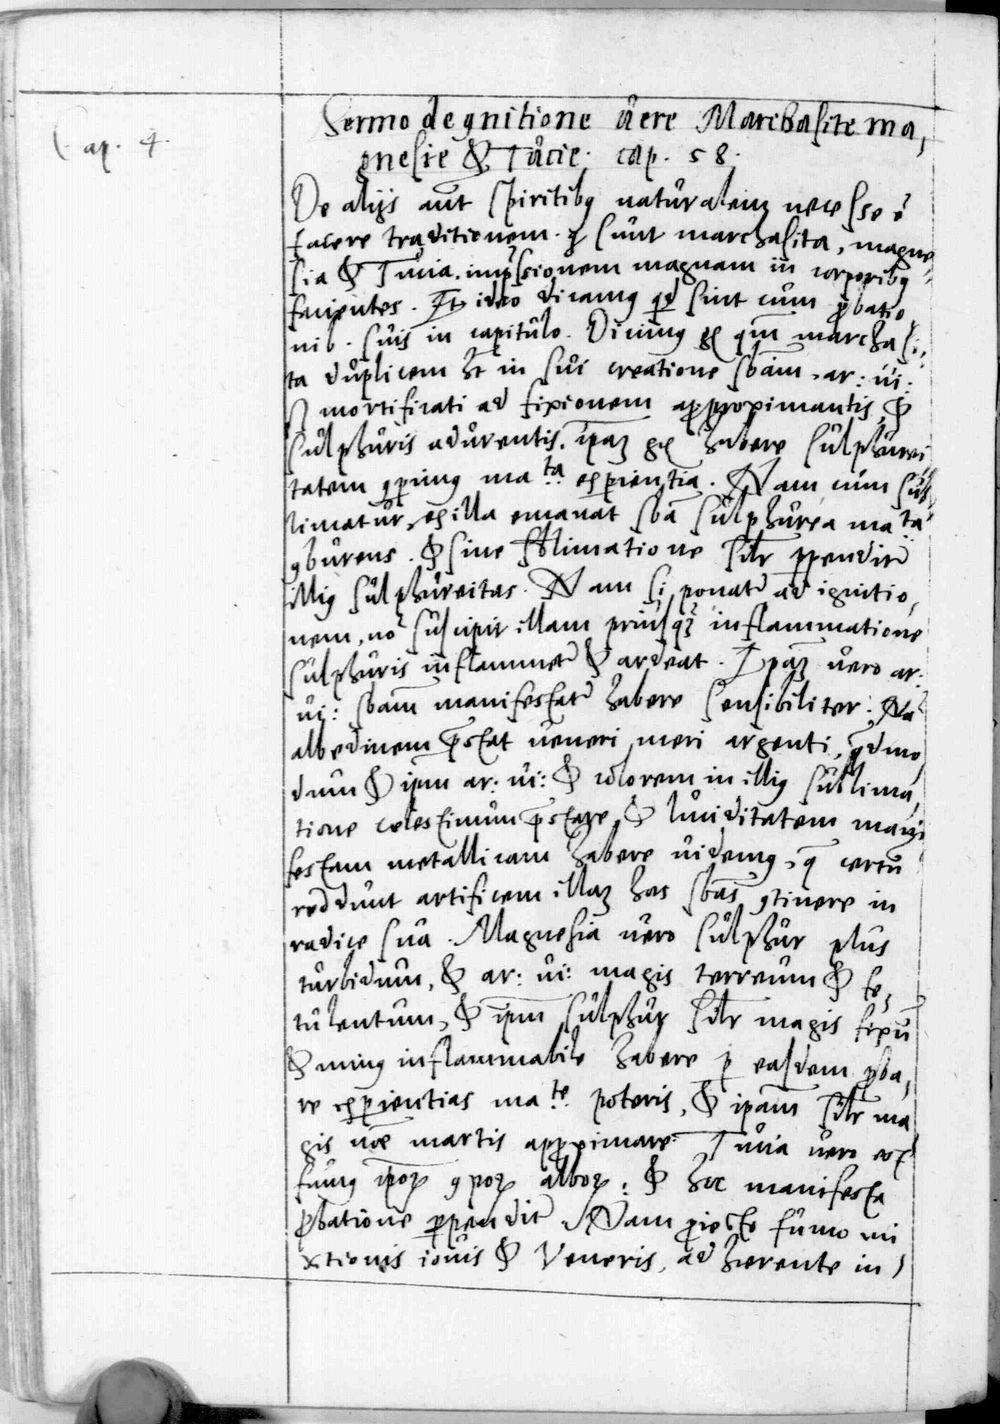 Cap. 4.
Sermo de ꝯnitione vere Marchasite ma,
gnesie & Tucie. cap. 58.
De alijs aūt spiritibꝯ naturalem necesse ē
facere traditionem. q̄ sunt marchasita, magne
sia & Tucia. imp̄ssionem magnam in corporibꝯ
facientes. Et ideo dicamꝯ qd sint cum ꝓbatio
nib. suis in capitulo. Dicimꝯ gͦ qm̄ marcha si,
ta duplicem hēt in sui creatione sbām, ar: vi:
s. mortificati ad fixionem approximantis, &
sulphuris adurentis. ip̄az gͦ habere sulphurei
tatem ꝯperimꝯ maᵗᵃ experientia. Nam cum sub
limatur, ex illa emanat sbā sulphurea maᵗᵃ
ꝯburens. & sine sublimatione silr ꝑpenditr
illiꝯ sulphureitas. Nam si ponatr ad ignitio,
nem, nō suscipit illam priusqꝫ inflammatione
sulphuris inflammetr & ardeat. Ip̄az vero ar:
vi: sbām manifestatr habere sensibiliter. Nā
albedinem p̄stat veneri meri argenti, quēdmo,
dum & ip̄m ar: vi: & colorem in illiꝯ sublima,
tione celestinum p̄stare, & luciditatem mani
festam metallicam habere videmꝯ, q̄ certū
reddunt artificem illaz has sbās ꝯtinere in
radice sua. Magnesia vero sulphur plus
turbidum, & ar: vi: magis terreum & fe,
tulentum, & ip̄m sulphur silr magis fixū
& minꝯ inflammabile habere ꝑ easdem ꝓba,
re exꝑientias maᵗᵉ. poteris, & ipām silr ma
gis nāe martis approximare. Tucia vero est
fumꝯ ip̄oꝝ ꝯpoꝝ alboꝝ. & hoc manifesta
ꝓbatione ꝑpenditr. Nam ꝓiecte fumo mi
xtionis iovis & Veneris, adherente in